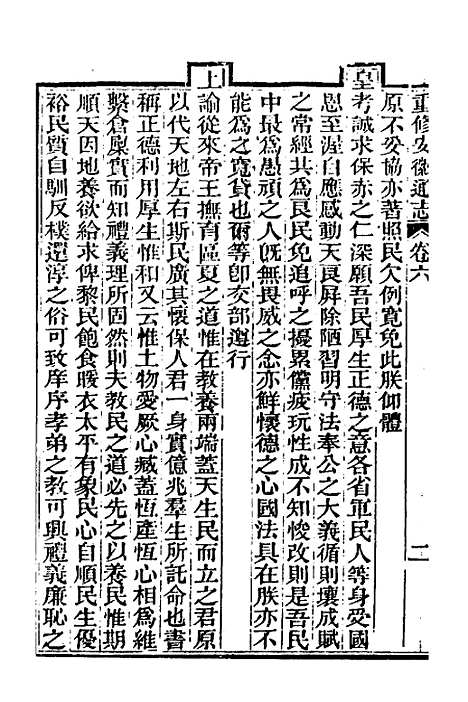 重修安徽通志 卷六 二
原不妥協亦著照民欠例寬免此朕仰體
皇考誠求保赤之仁深願吾民厚生正德之意各省軍民人等身受國
恩至渥自應感動天良屏除陋習明守法奉公之大義循則壤成賦
之常經共爲良民免追呼之擾累儻疲玩性成不知悛改則是吾民
中最爲愚頑之人旣無畏威之念亦鮮懷德之心國法具在朕亦不
能爲之寬貸也爾等卽交部遵行
上諭從來帝王撫育區夏之道惟在敎養兩端蓋天生民而立之君原
以代天地左右斯民廣其懷保人君一身實億兆羣生所託命也書
稱正德利用厚生惟和又云惟土物愛厥心臧蓋恆產恆心相爲維
繫倉廩實而知禮義理所固然則夫敎民之道必先之以養民惟期
順天因地養欲給求俾黎民飽食暖衣太平有象民心自順民生優
裕民質自馴反樸還淳之俗可致庠序孝弟之敎可興禮義廉恥之